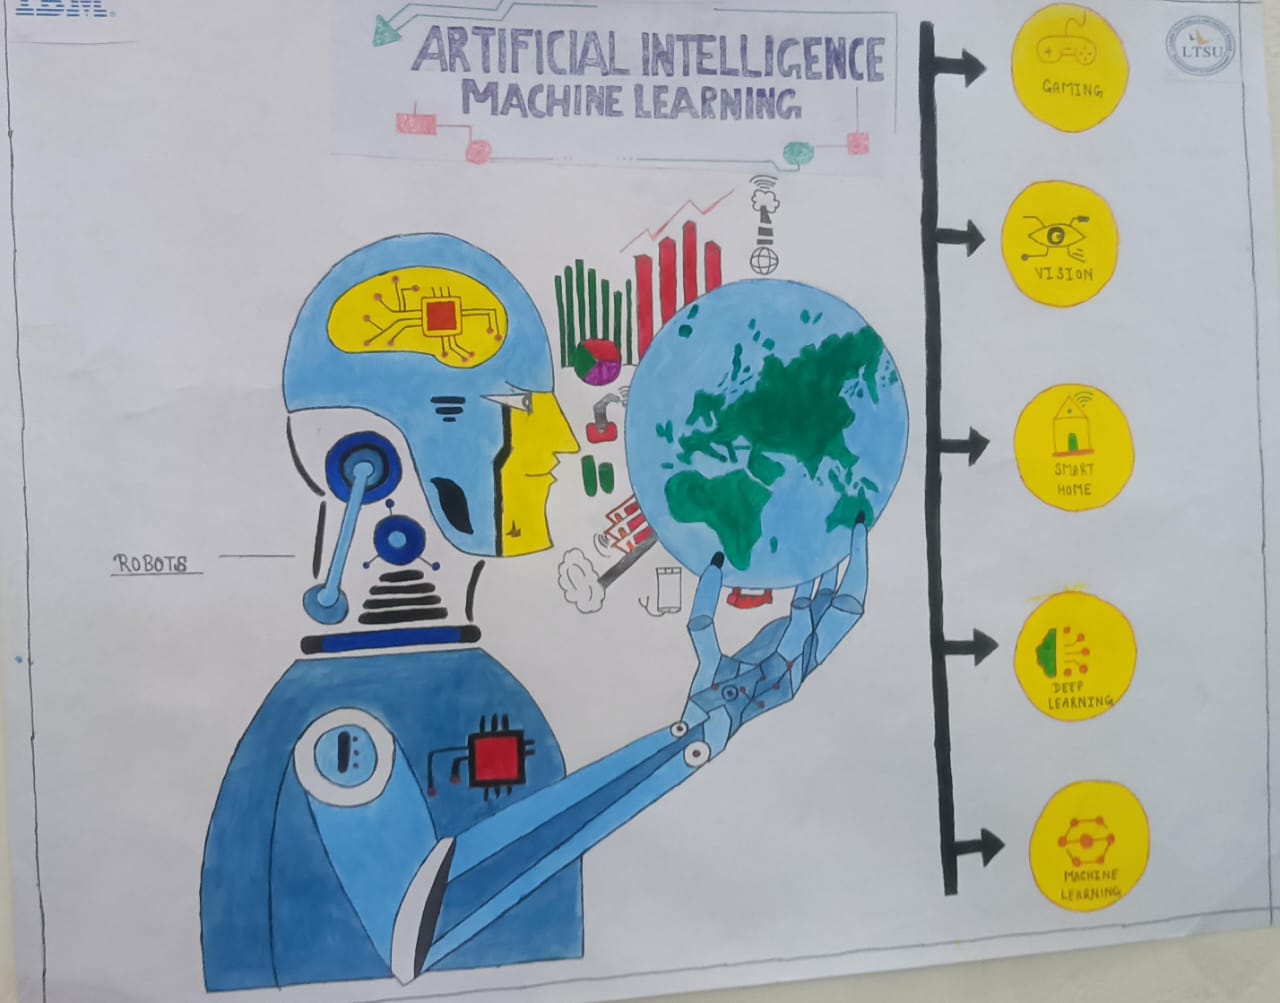 IBM.
ARTIFICIAL INTELLIGENCE
MACHINE LEARNING
LTSU
GAMING
VISION
SMART
HOME
ROBOTS
DEEP
LEARNING
MACHINE
LEARNING